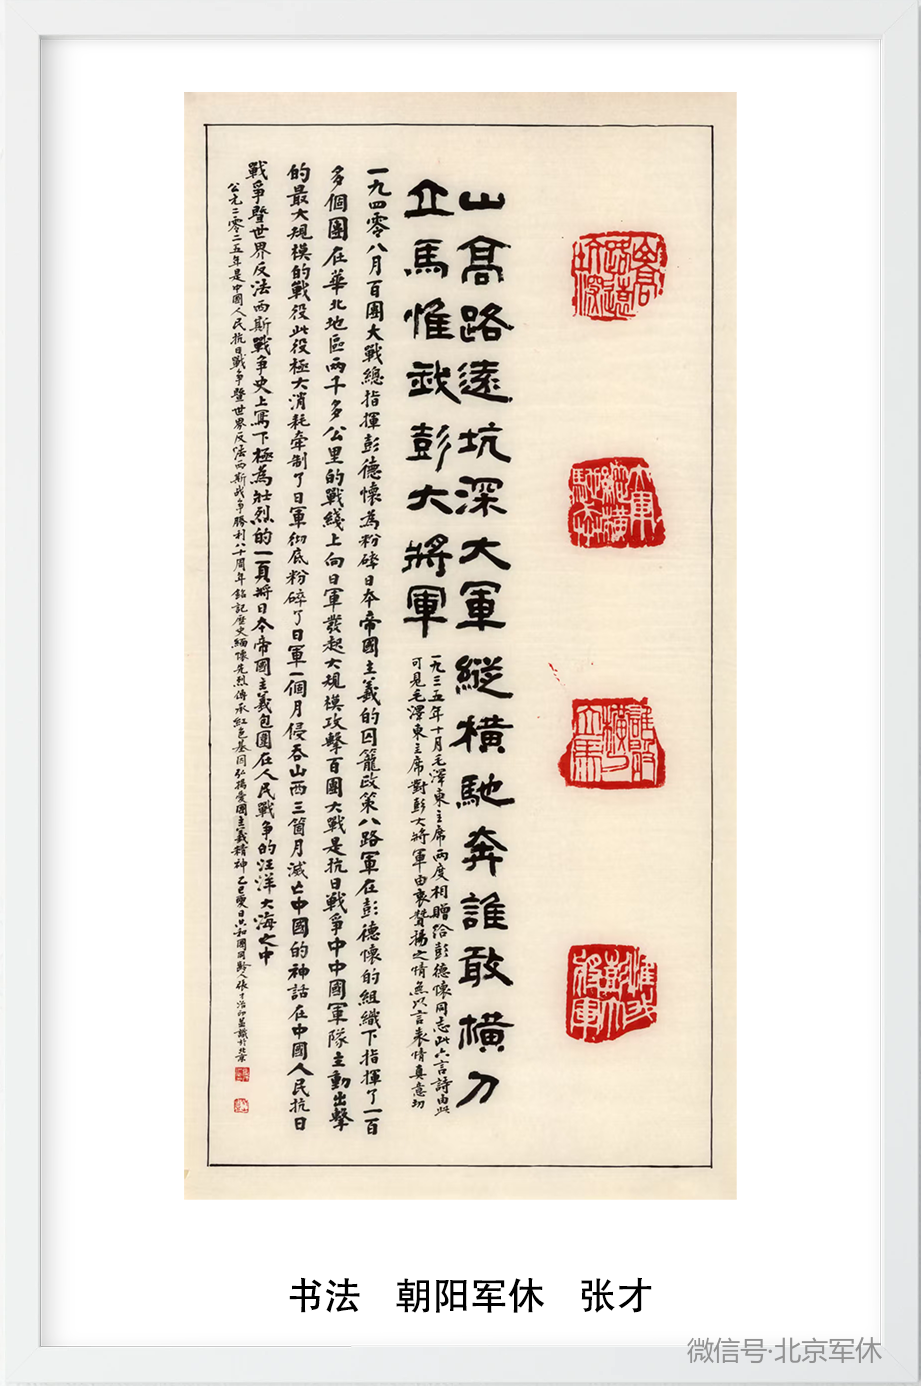 山高路遠坑深
大軍縱橫馳奔
誰敢橫刀立馬
惟我彭大將軍
山髙路遠坑深大軍縱橫馳奔誰敢橫刀
立馬惟我彭大將軍
一九三五年十月毛澤東主席兩度相贈給彭德懷同志此六言詩由此
可見毛澤東主席對彭大將軍由衷贊揚之情無以言表情真意切
一九四零八月百團大戰總指揮彭德懷為粉碎日本帝國主義的囚籠政策八路軍在彭德懷的組織下指揮了一百
多個團在華北地區兩千多公里的戰綫上向日軍發起大規模攻擊百團大戰是抗日戰爭中中國軍隊主動出擊
的最大規模的戰役此役極大消耗牽制了日軍彻底粉碎了日軍一個月侵吞山西三箇月滅亡中國的神話在中國人民抗日
戰爭暨世界反法西斯戰爭史上寫下極為壯烈的一頁將日本帝國主義包圍在人民戰爭的汪洋大海之中
公元二零二五年是中國人民抗日戰爭暨世界反法西斯战争勝利八十周年銘記歷史緬懷先烈傳承紅色基因弘揚愛國主義精神乙巳夏日共和國同齡人張才治印并識於北京
书法 朝阳军休 张才
微信号·北京军休